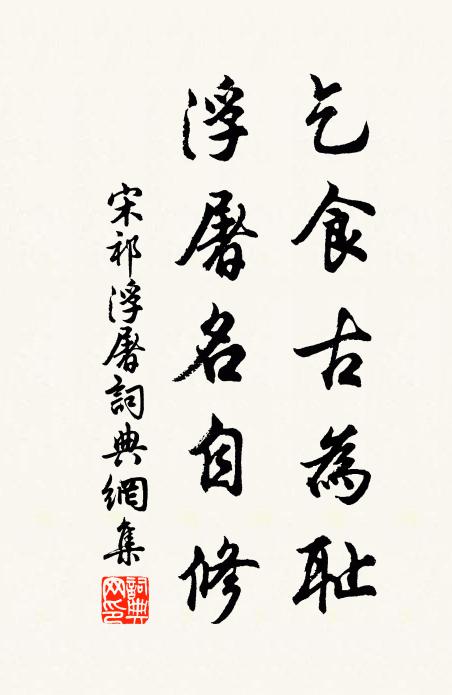 乞食古為耻
浮屠名自修
宋祁浮屠詞典網集
詞典网印